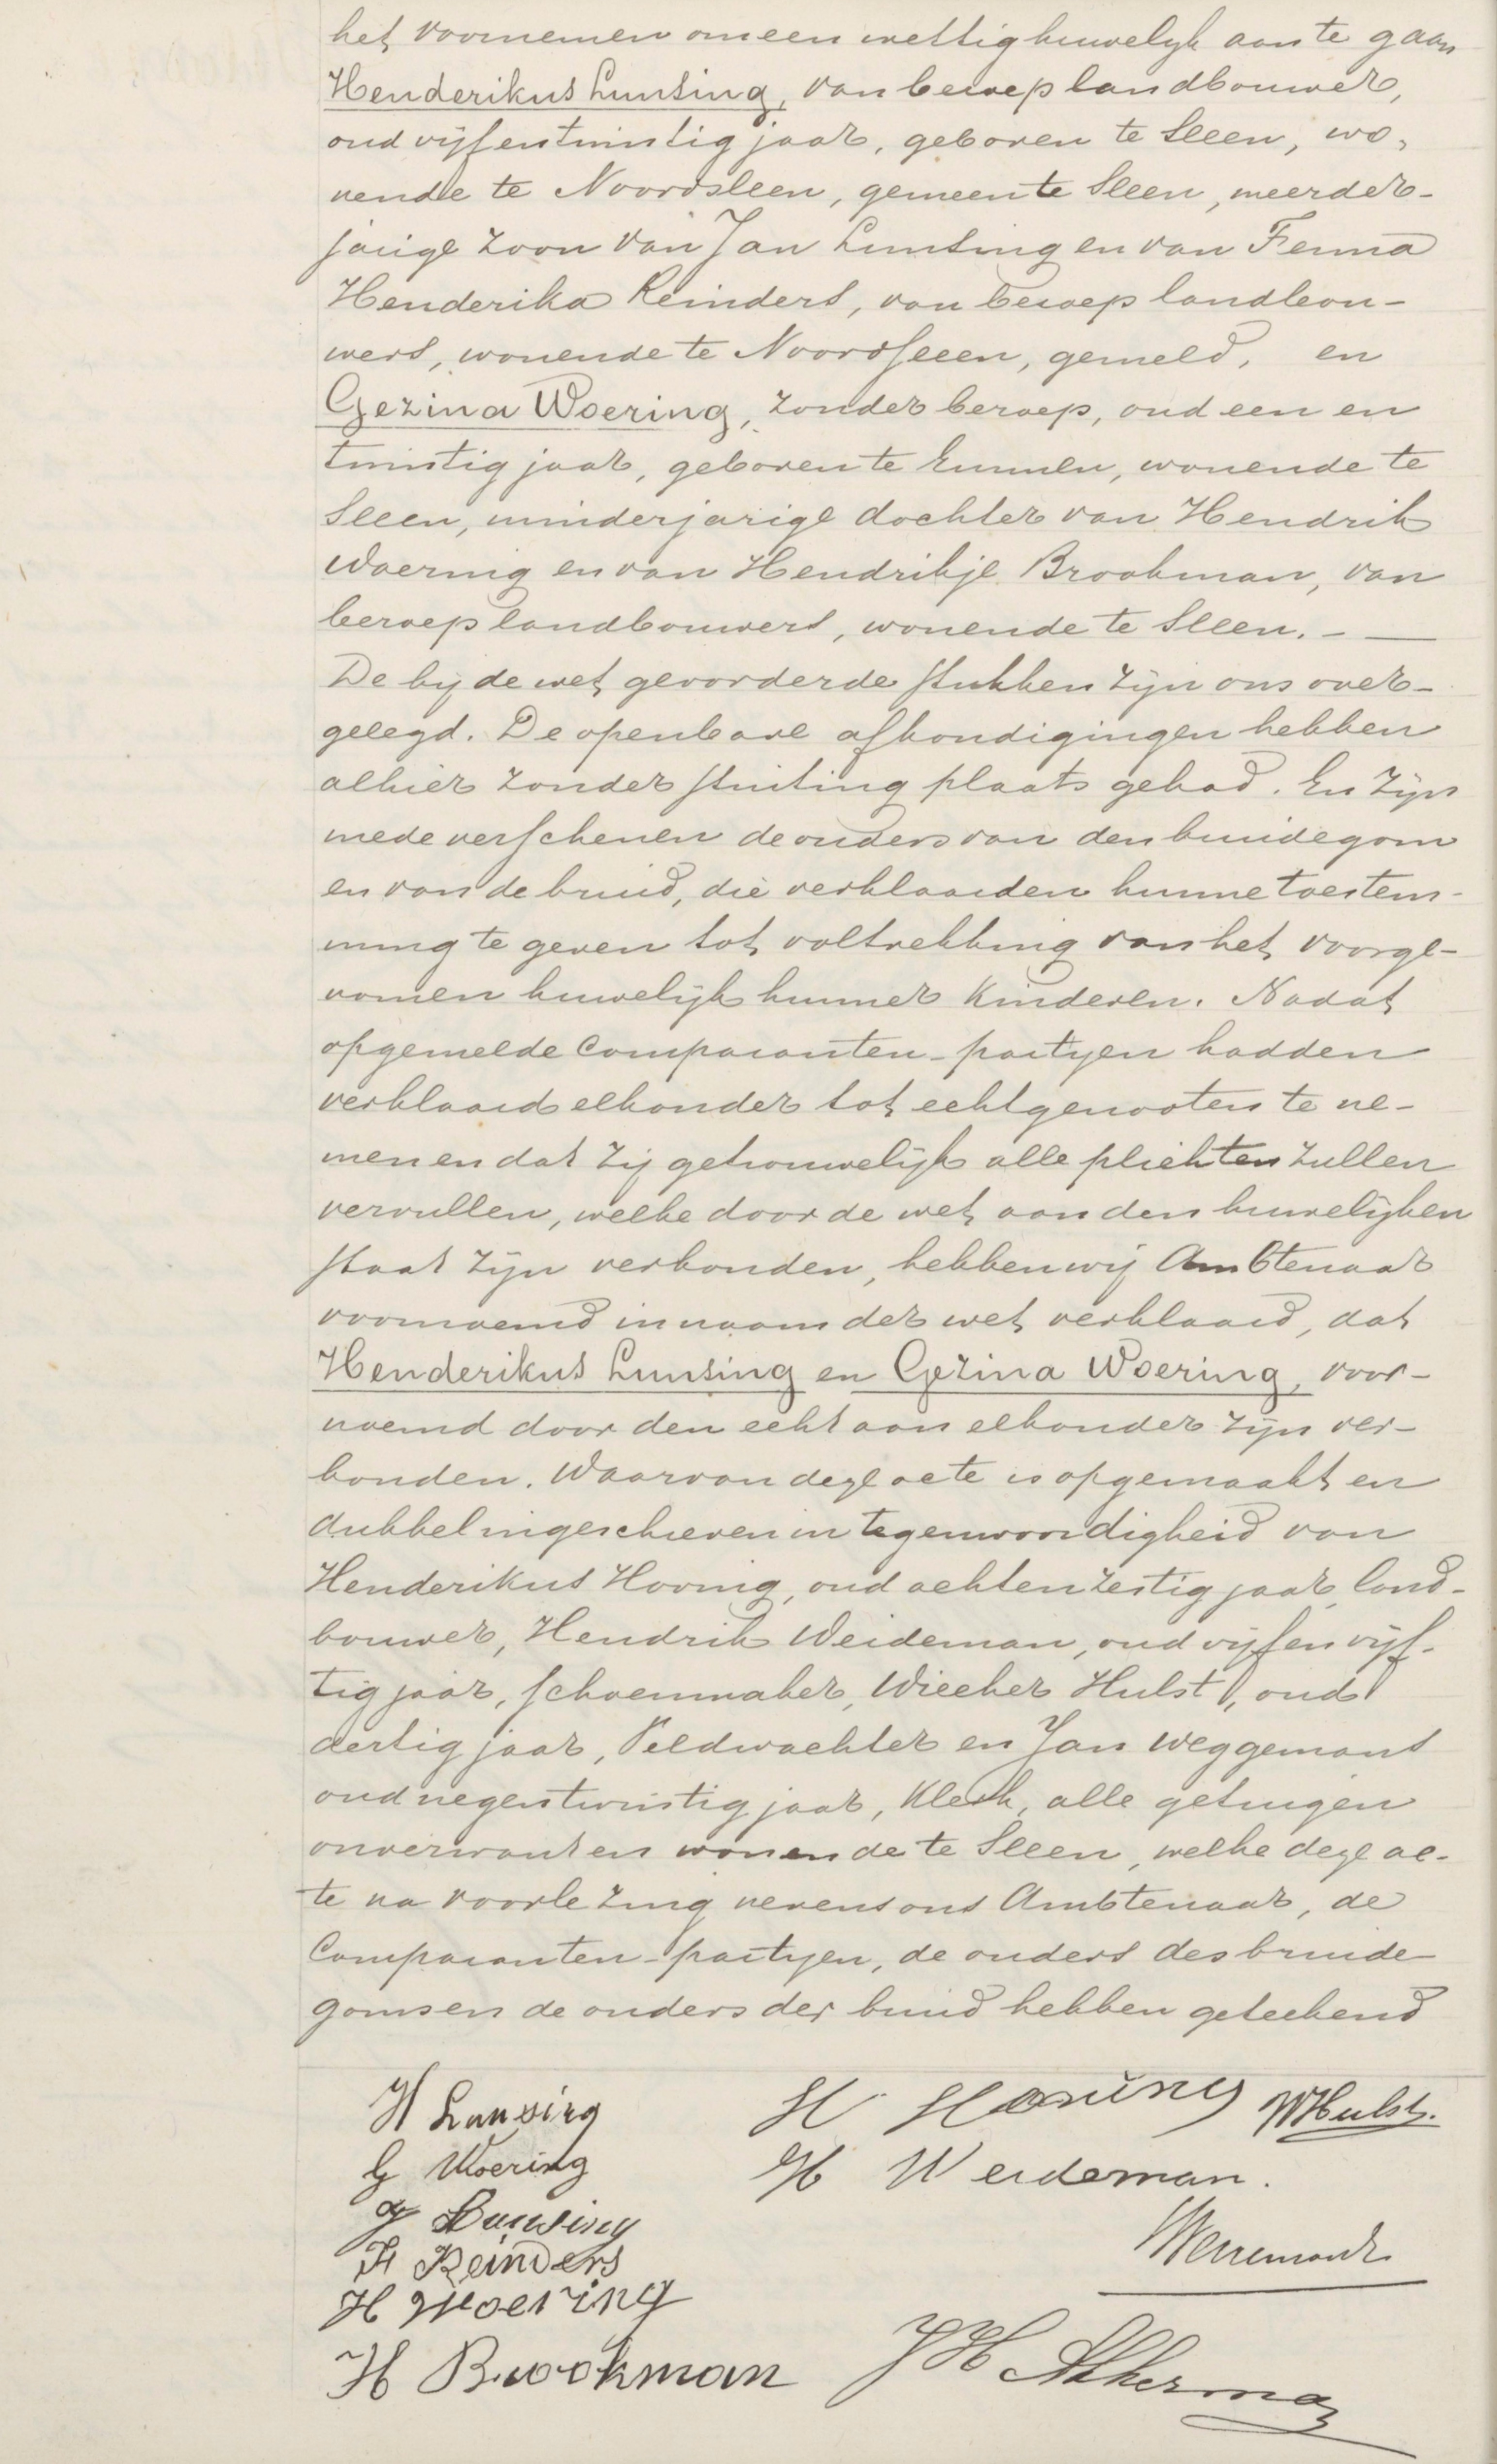 het voornemen om een wettig huwelijk aan te gaan
Henderikus Lunsing, van beroep landbouwer,
oud vijfentwintig jaar, geboren te Sleen, wo,
nende te Noordsleen, gemeente Sleen, meerder-
jarige zoon van Jan Lunsing en van Fenna
Henderika Reinders, van beroep landbou-
wers, wonende te Noordsleen, gemeld, en
Gezina Woering, zonder beroep, oud een en
twintig jaar, geboren te Emmen, wonende te
Sleen, minderjarige dochter van Hendrik
Woering en van Hendrikje Brookman, van
beroep landbouwers, wonende te Sleen. - —
De bij de wet gevorderde stukken zijn ons over-
gelegd. De openbare afkondigingen hebben
alhier zonder stuiting plaats gehad. En zijn
mede verschenen de ouders van den bruidegom
en van de bruid, die verklaarden hunne toestem-
ming te geven tot voltrekking van het voorge-
nomen huwelijk hunner kinderen. Nadat
opgemelde Comparanten-partijen hadden
verklaard elkander tot echtgenooten te ne-
men en dat zij getrouwelijk alle plichten zullen
vervullen, welke door de wet aan den huwelijken
staat zijn verbonden, hebben wij Ambtenaar
voornoemd in naam der wet verklaard, dat
Henderikus Lunsing en Gezina Woering, voor-
noemd door den echt aan elkander zijn ver-
bonden. Waarvan deze acte is opgemaakt en
dubbel ingeschreven in tegenwoordigheid van
Henderikus Hoving, oud achtenzestig jaar, land-
bouwer, Hendrik Weideman, oud vijfenvijf-
tig jaar, schoenmaker, Wiecher Hulst, oud
dertig jaar, Veldwachter en Jan Weggemans
oud negentwintig jaar, Klerk, alle getuigen
onverwant en wonende te Sleen, welke deze ac-
te na voorlezing nevens ons Ambtenaar, de
Comparanten-partijen, de ouders des bruide-
goms en de ouders der bruid hebben geteekend
H Lunsing H Hoving WHulst.
G Woering H Weideman.
J Lunsing
F H Reinders
H Woering
H Brookman JH